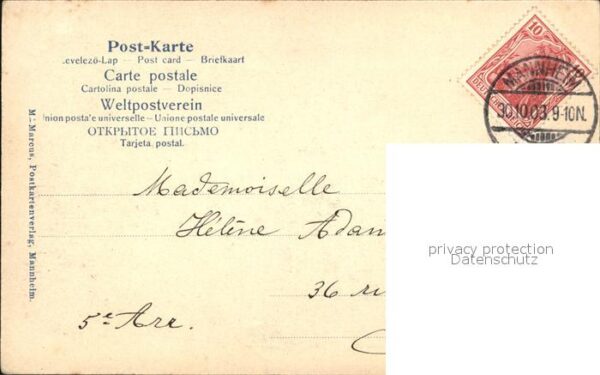 Post-Karte
.evelező-Lap — Post card — Briefkaart
Carte postale
Cartolina postale — Dopisnice
Weltpostverein
Union postale universelle — Unione postale universale
ОТКРЫТОЕ ПИСЬМО
Tarjeta postal.
10
10
MANNHEIM
30.10.03. 9-10N.
M. Marcus, Postkartenverlag, Mannheim.
Mademoiselle
Hélène Adan
privacy protection
Datenschutz
36 ru
5e Arr.